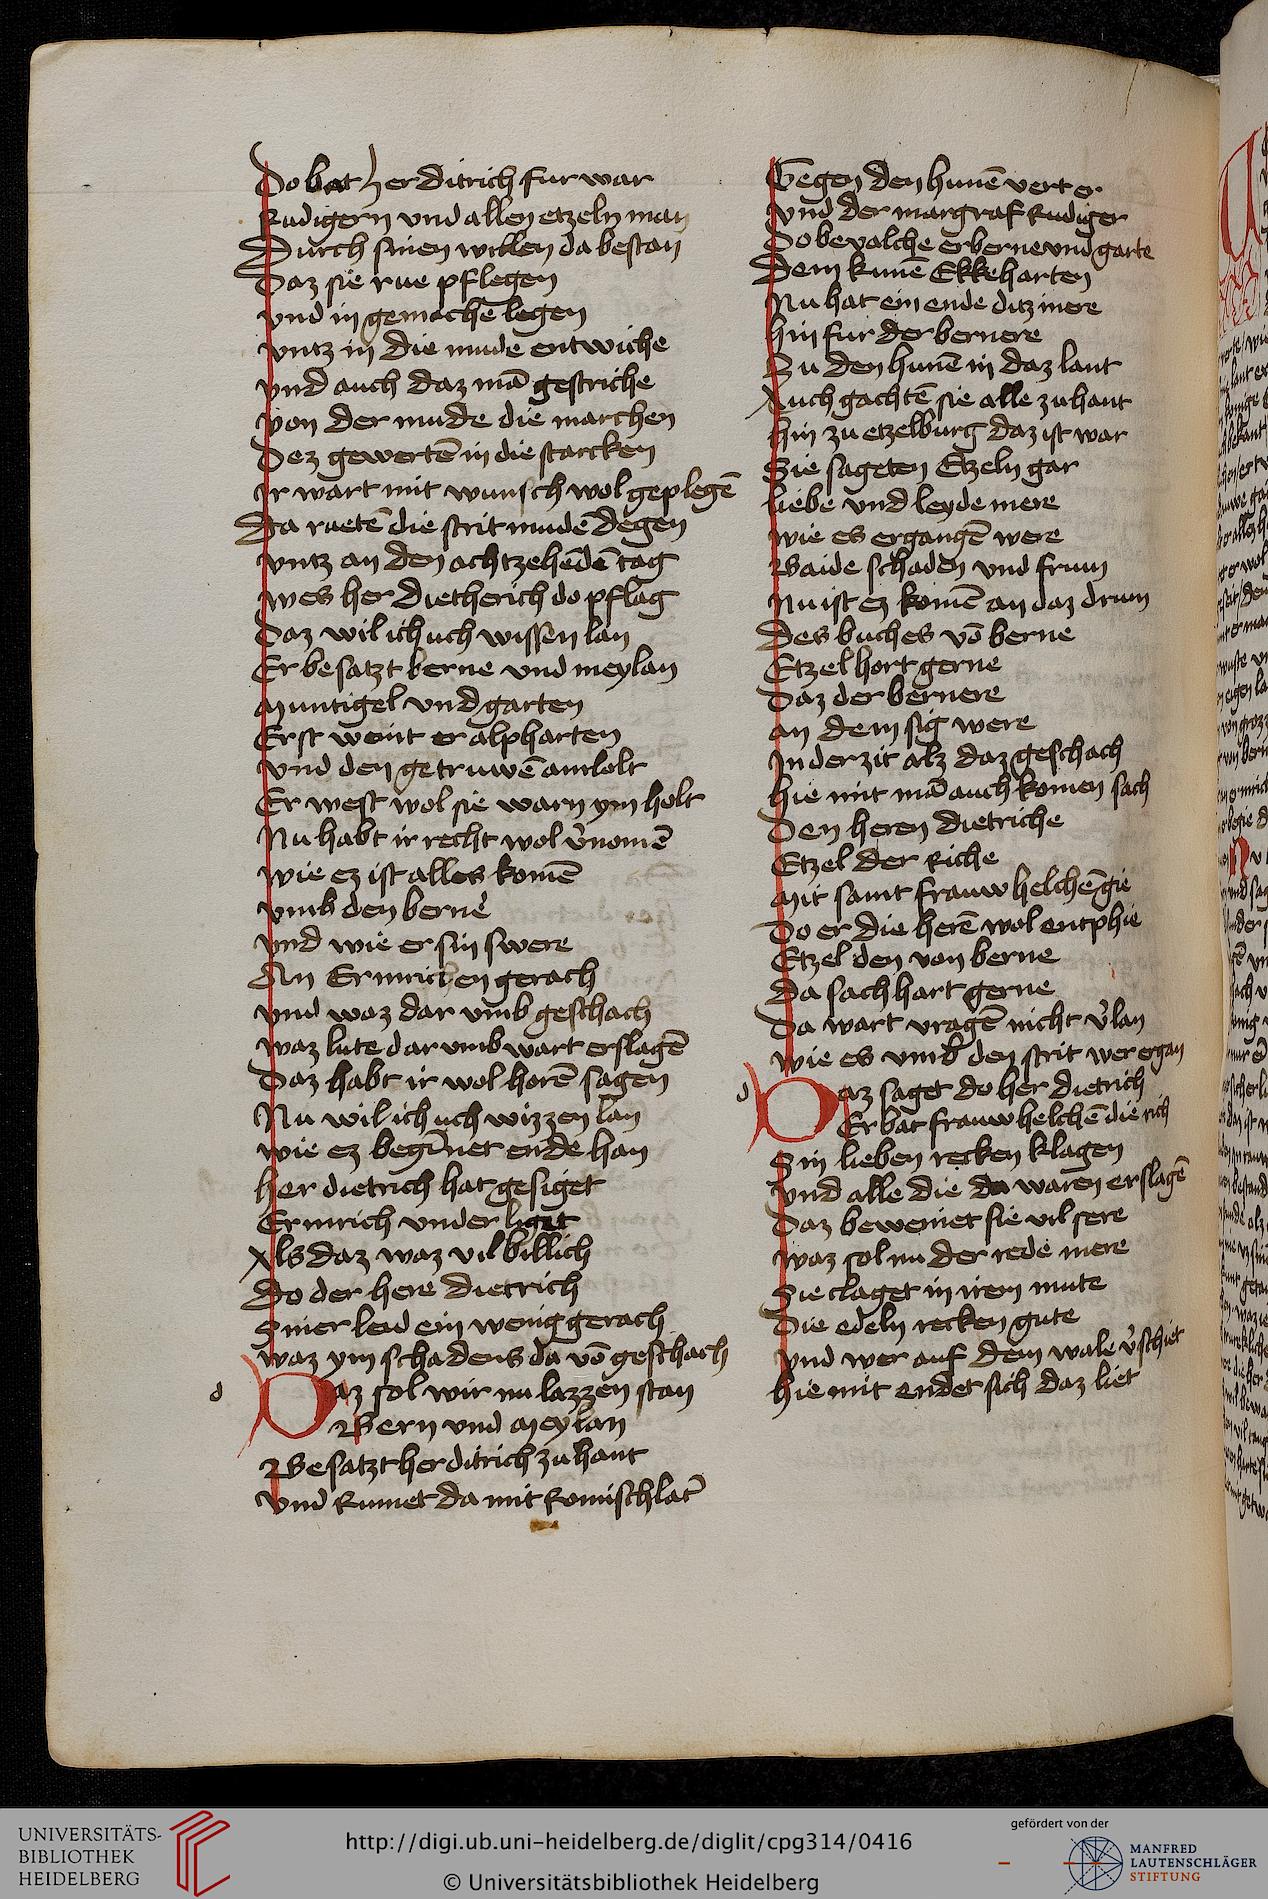 Do bat her ditrich fur war
Rudigern vnd allen etzeln man
Durch sinen willen da bestan
Daz sie rue pflegen
vnd in gemache legen
vntz in die mude entwiche
vnd auch daz mā gestriche
von der mude die marchen
Dez gewertē in die starcken
Ir wart mit wunsch wol geplegē
Da ruetē die strit mudē degen
vntz an den achtzehēdē tag
wes her Dietherich do pflag
Daz wil ich uch wissen lan
Er besatzt berne vnd meylan
Muntigel vnd garten
Erst weint er alpharten
vnd den getruwē amlolt
Er west wol sie warn ym holt
Nu habt ir recht wol v̄nomē
wie ez ist alles komē
vmb den berne
vnd wie er sin swere
An Ermrichen gerach
vnd waz dar vmb geschach
waz lute dar vmb wart erslagē
Daz habt ir wol horē sagen
Nu wil ich uch wizzen lan
wie ez begīnet ende han
her dietrich hat gesiget
Ermrich vnder liget
Als daz waz vil billich
Do der here dietrich
Siner leid ein wenig gerach
waz ym schadens da vō geschach
d Daz sol wir nu lazzen stan
Bern vnd Meylan
Besatzt her ditrich zu hant
vnd Rumet da mit Romisch lāt
Gegen den hunē vert er
vnd der margraf Rudiger
Do bevalche er berne vnd garte
Dem kunē Ekkeharten
Nu hat ein ende ditz mere
hin fur der bernere
Zu den hunē in daz lant
Auch gachtē sie alle zu hant
hin zu etzelburg daz ist war
Sie sageten Etzeln gar
liebe vnd leyde mere
wie es ergangē were
Baide schaden vnd frum
Nu ist ez komē an daz drum
Des buches vō berne
Etzel hort gerne
Daz der bernere
an dem sig were
In der zit alz daz geschach
hie mit mā auch komen sach
Den heren dietriche
Etzel der Riche
Mit samt frauw helchē gie
Do er die herē wol entphie
Etzel den von berne
Da sach hart gerne
Da wart vragē nicht v̄lan
wie es vmb den strit wer ergan
d Daz saget do her dietrich
Er bat frauw helchē die rich
Sin lieben recken klagen
vnd alle die da waren erslagē
Daz beweinet sie vil sere
waz sol nu der rede mere
Sie claget in irem mute
Die edeln recken gute
vnd wer auf dem wale v̄schiet
hie mit endet sich daz liet
UNIVERSITÄTS-
BIBLIOTHEK
HEIDELBERG
http://digi.ub.uni-heidelberg.de/diglit/cpg314/0416
© Universitätsbibliothek Heidelberg
gefördert von der
MANFRED
LAUTENSCHLÄGER
STIFTUNG